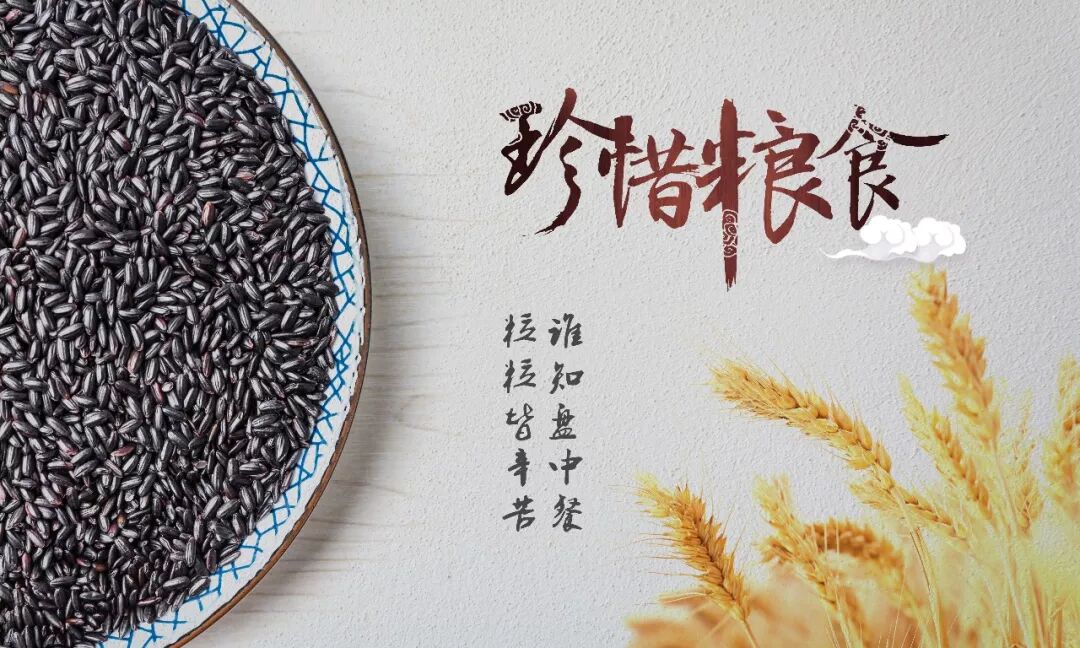 珍惜粮食
谁知盘中餐
粒粒皆辛苦